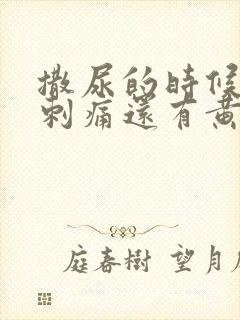 撒尿的時候
刺痛還有黃
庭春樹 望月